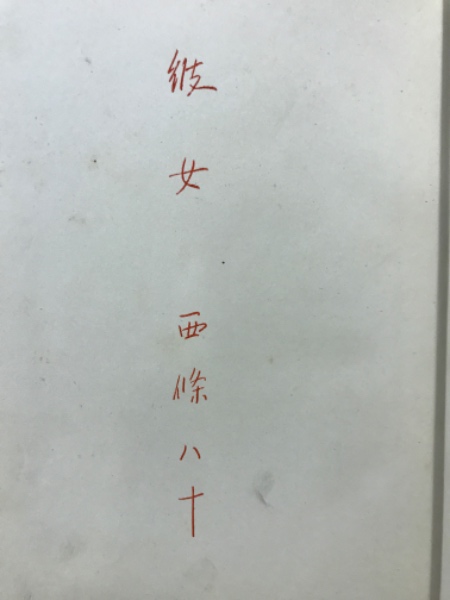 彼女 西條八十